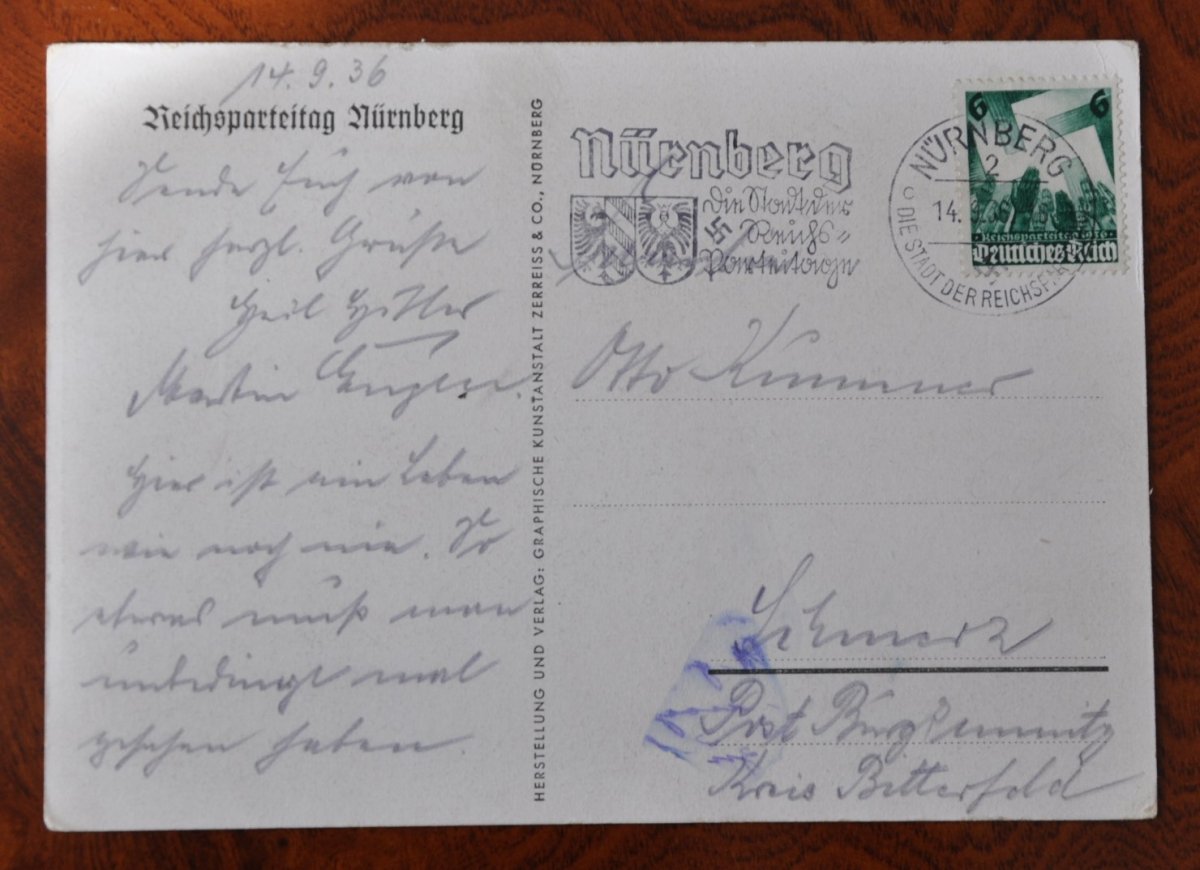 14.9.36
Reichsparteitag Nürnberg
Sende Euch von
hier herzl. Grüße
Heil Hitler
Martin
Hier ist ein Leben
wie noch nie. So
etwas muß man
unbedingt mal
gesehen haben.
HERSTELLUNG UND VERLAG: GRAPHISCHE KUNSTANSTALT ZERREISS & CO., NÜRNBERG
Nürnberg
Die Stadt der
Reichs=
Parteitage
NÜRNBERG
2
14.
DIE STADT DER REICHSPA
6 6
Reichsparteitag 1936
Deutsches Reich
Otto Kummer
Schmerz
Post Burgkemnitz
Kreis Bitterfeld